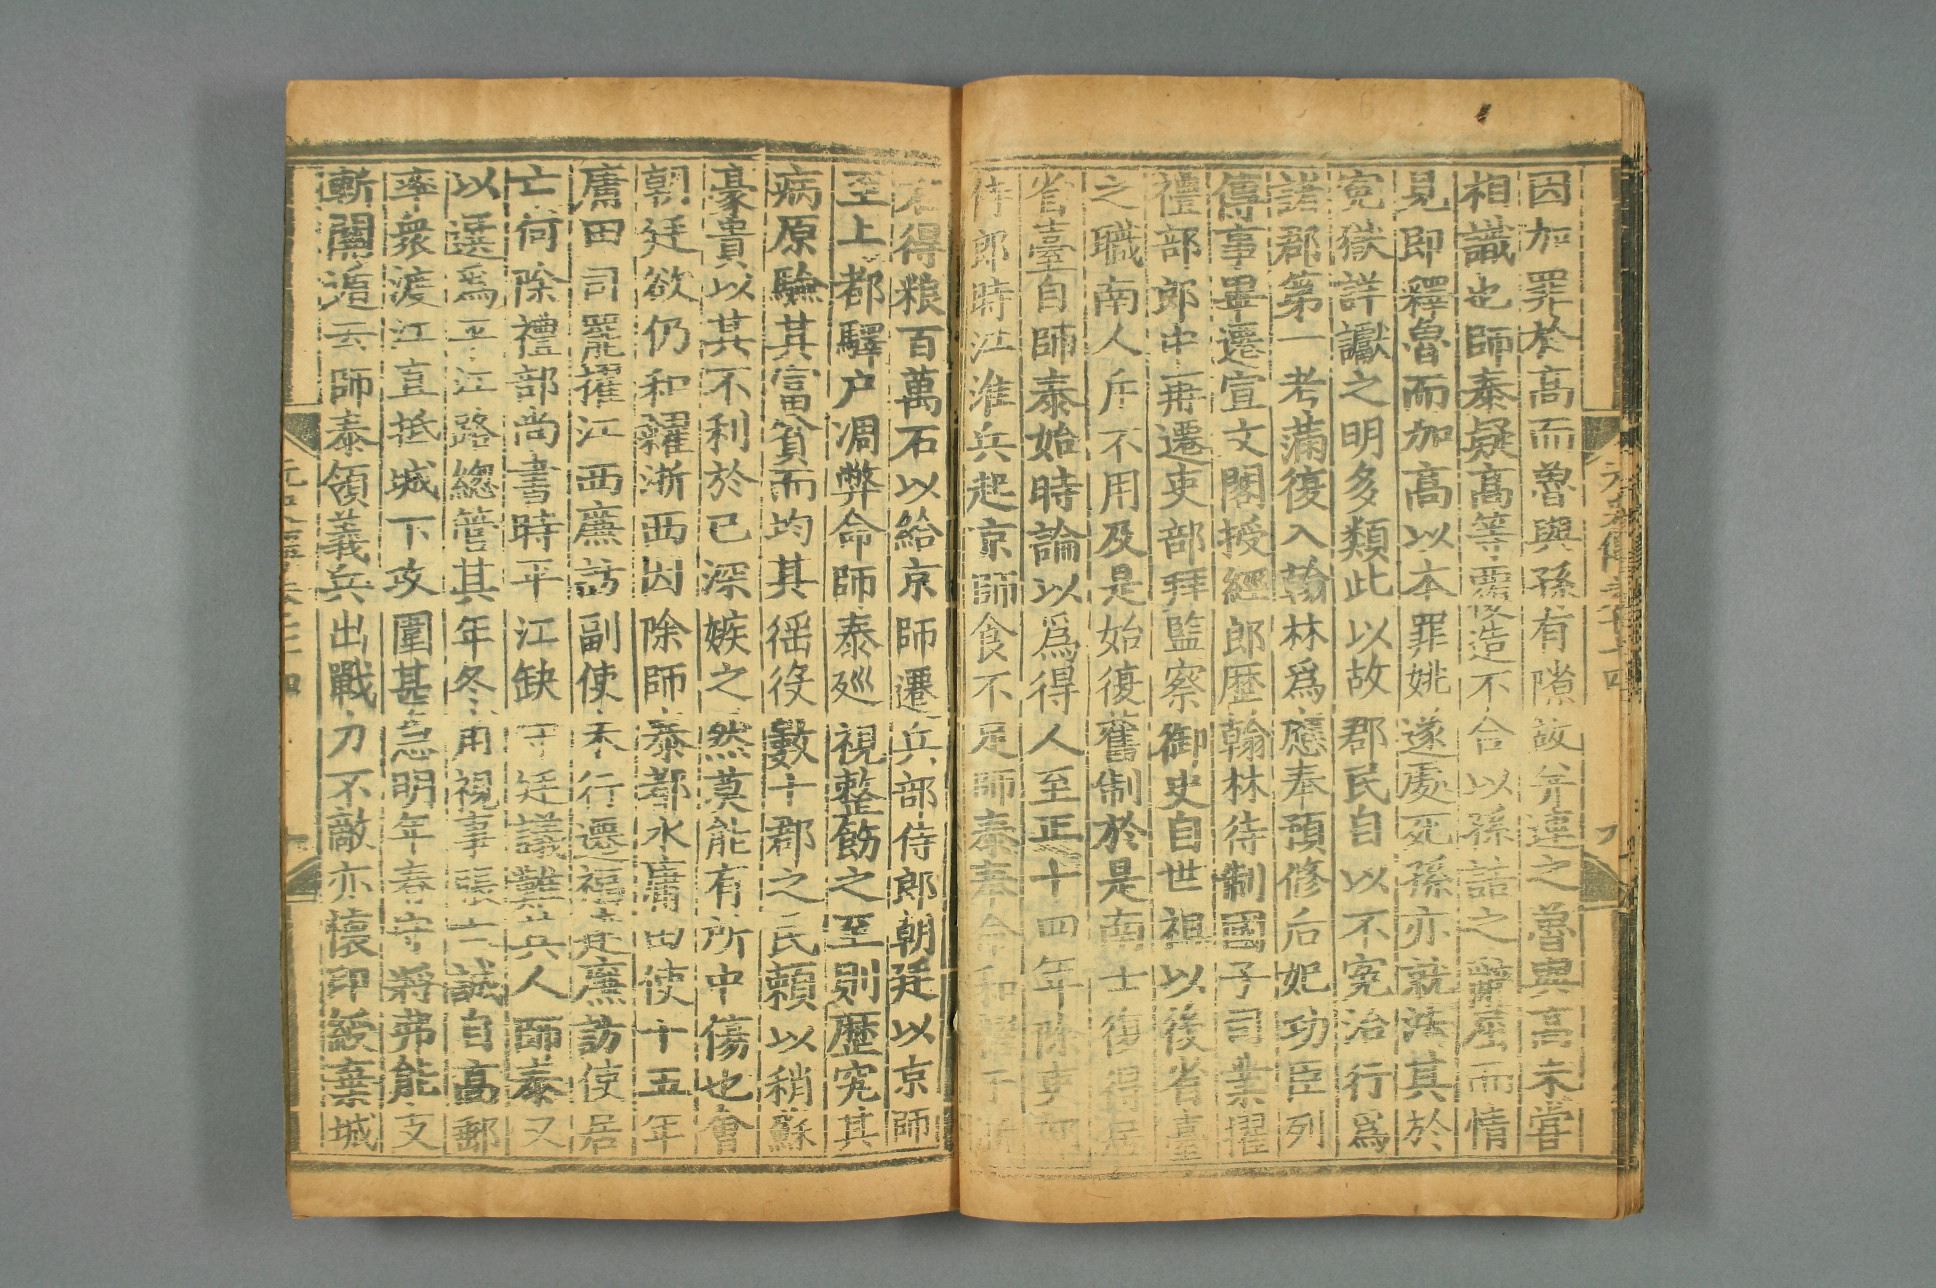 因加罪於高而魯與孫有隙故并逮之魯與高未嘗
相識也師泰疑高等覆造不合以孫詰之辭屈而情
見即釋魯而加高以本罪姚遂處死孫亦就法其於
寃獄詳讞之明多類此以故郡民自以不寃治行爲
諸郡第一考滿復入翰林爲應奉預修后妃功臣列
傳事畢遷宣文閣授經郎歷翰林待制國子司業擢
禮部郎中再遷吏部拜監察御史自世祖以後省臺
之職南人斥不用及是始復舊制於是南士復得居
省臺自師泰始時論以爲得人至正十四年除吏部
侍郎時江淮兵起京師食不足師泰奉命和糴于浙
右得粮百萬石以給京師遷兵部侍郎朝廷以京師
至上都驛户凋弊命師泰廵視整飭之至則歷究其
病原驗其富貧而均其徭役數十郡之民賴以稍蘇
豪貴以其不利於己深嫉之然莫能有所中傷也會
朝廷欲仍和糴浙西因除師泰都水庸田使十五年
庸田司罷擢江西廉訪副使未行遷福建廉訪使居
亡何除禮部尚書時平江缺守廷議難其人師泰又
以選爲平江路總管其年冬甫視事張士誠自高郵
率衆渡江直抵城下攻圍甚急明年春守將弗能支
斬關遁去師泰領義兵出戰力不敵亦懷印綬棄城